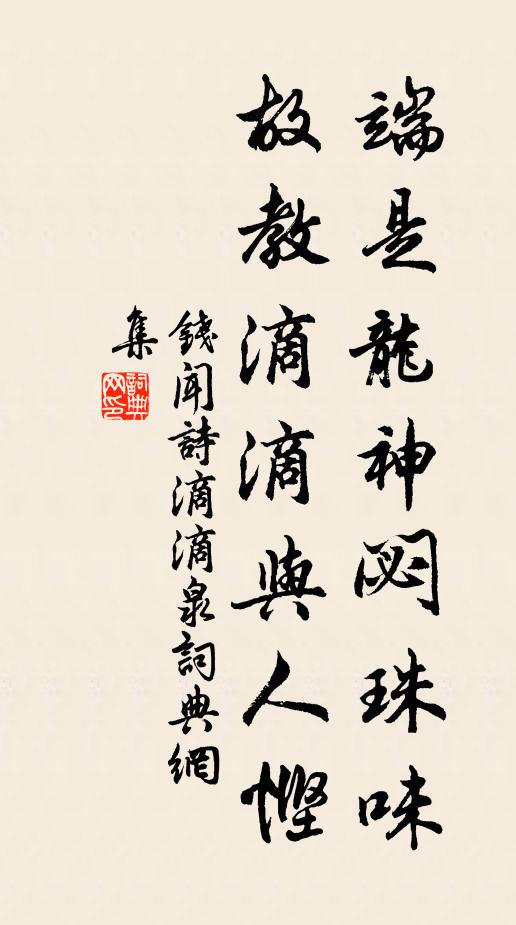 端是龍神閟珠味
故教滴滴與人慳
錢聞詩滴滴泉詞典網
集
詞典
网印